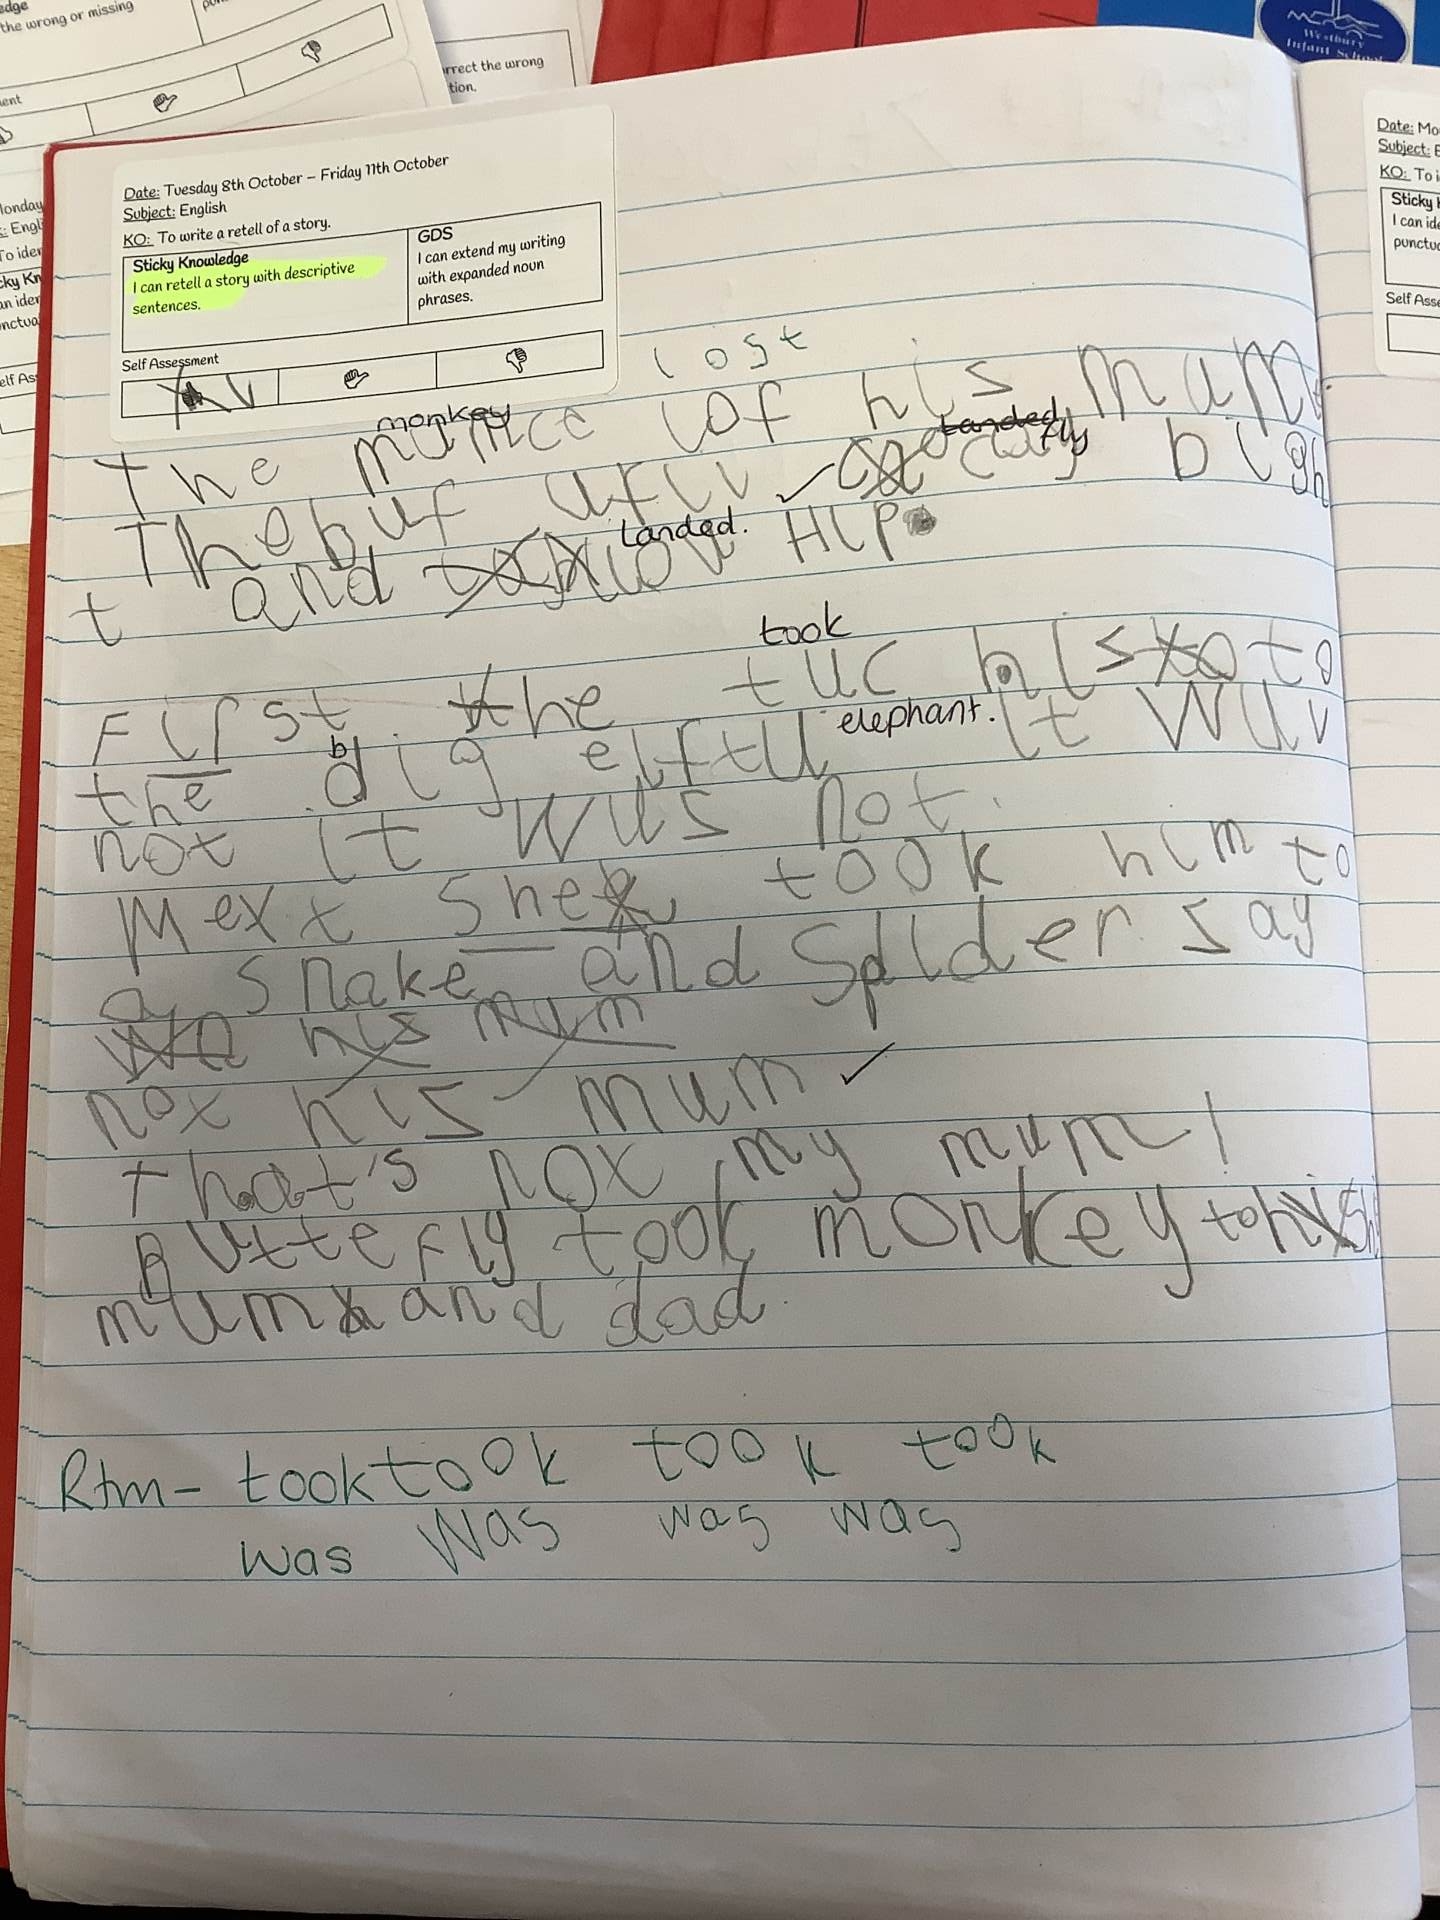 edge
the wrong or missing
ent
rrect the wrong
tion.
Westbury
Infant School
Date: Tuesday 8th October – Friday 11th October
Subject: English
KO: To write a retell of a story.
Sticky Knowledge
I can retell a story with descriptive
sentences.
GDS
I can extend my writing
with expanded noun
phrases.
Self Assessment
lost
monkey
The lof his mum
landed fly
The buf bigh
landed.
t and HLP
took
First the tuc his to
b elephant.
the dig elftu it wuv
not it wus not.
Mext she took him to
a snake and Spider say
his mum
not his mum
that's not my mum!
Butterfly took monkey to his
mum and dad.
Rtm - took took took took
was was was was
Date: Mo
Subject: E
KO: To i
Sticky
I can ide
punctuc
Self Asse
londay
Engl
To ider
cky Kn
an iden
nctua
elf As